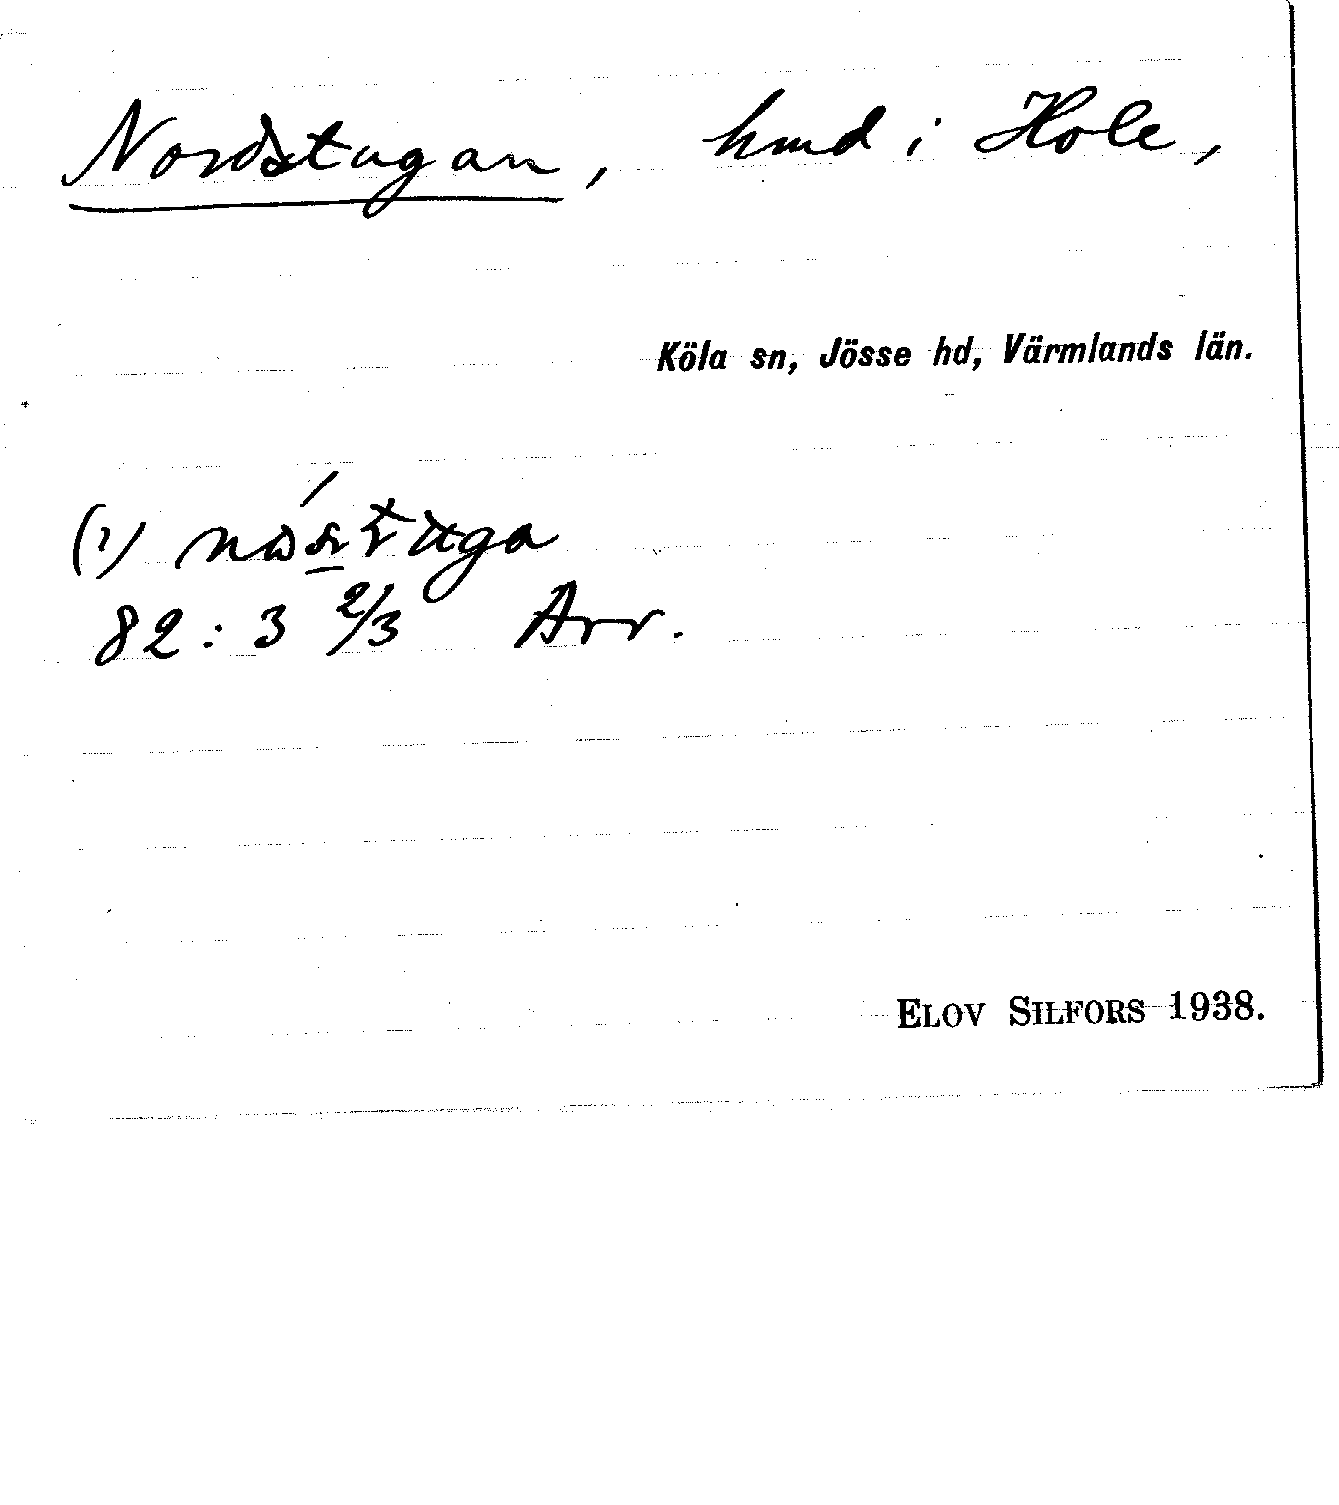 Nordstugan, hmd i Hole,
Köla sn, Jösse hd, Värmlands län.
(1)
82:3 2/3 Arr.
ELOV SILFORS 1938.